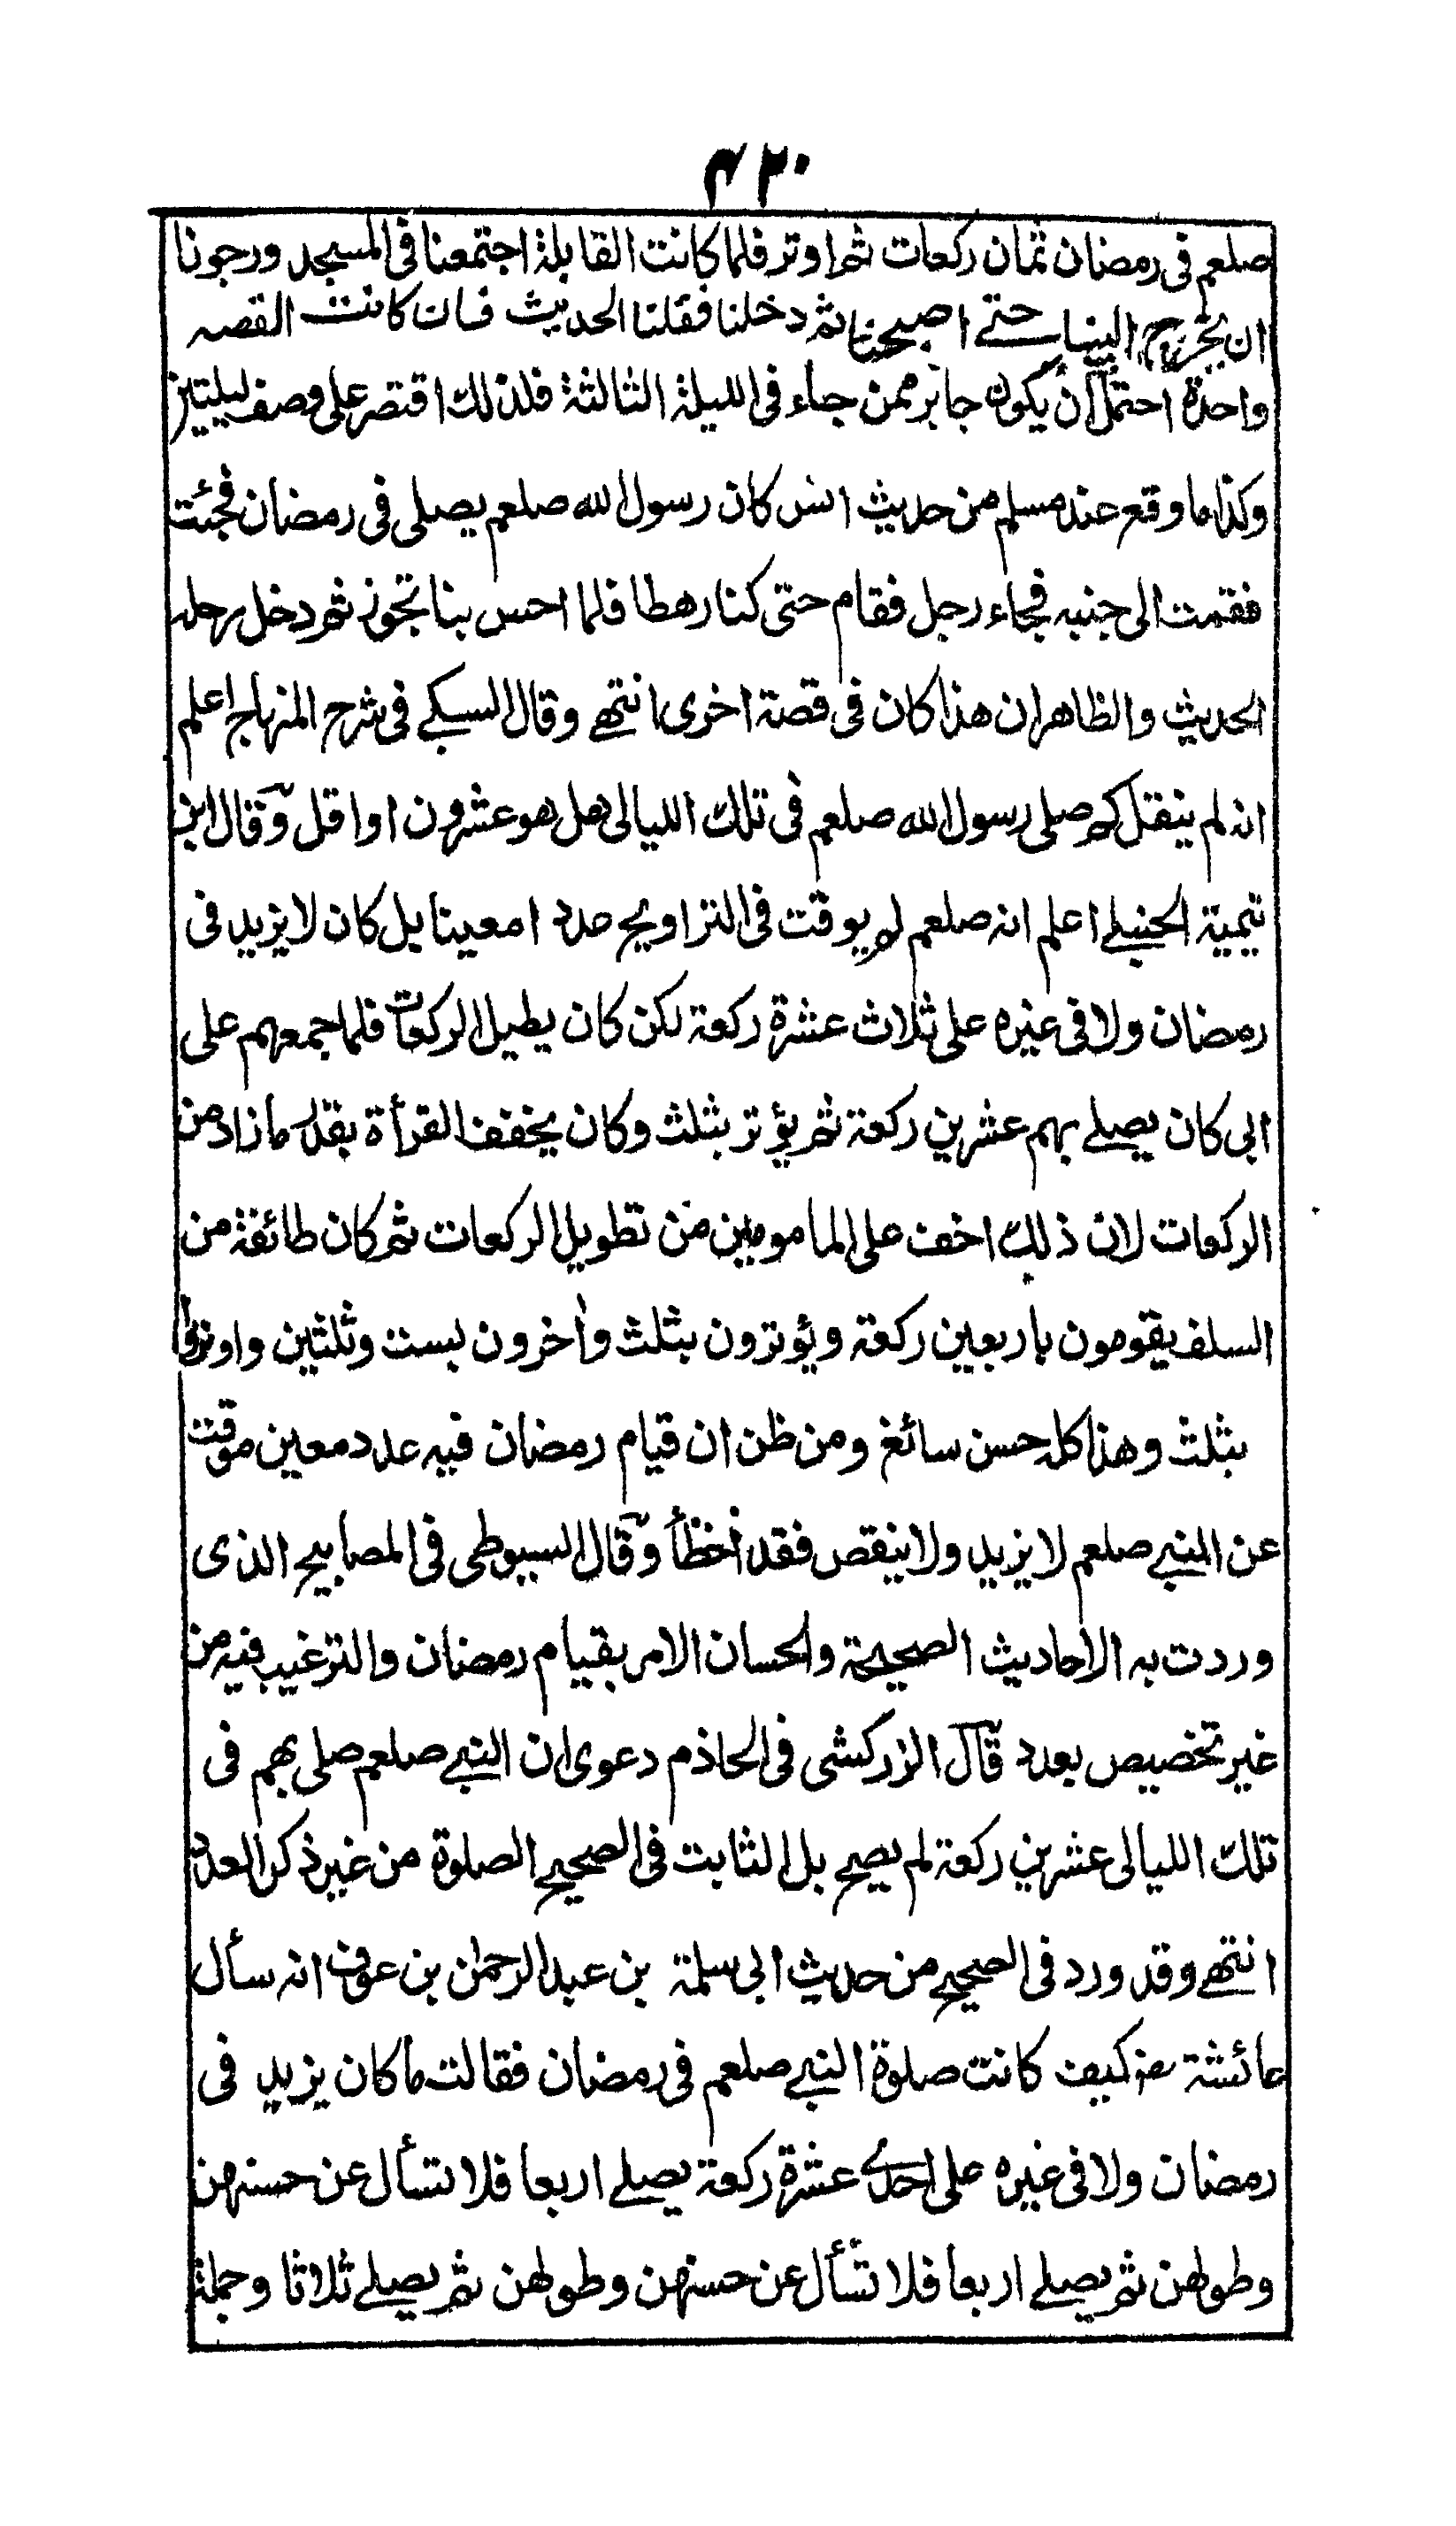 ۴۲۰
صلعم فى رمضان ثمان ركعات ثم اوتر فلما كانت القابلة اجتمعنا فى المسجد ورجونا
ان يخرج الينا حتے اصبحنا ثم دخلنا فقلنا الحديث فان كانت القصه
واحدة احتمل ان يكون جابر ممن جاء فى الليلة الثالثة فلذلك اقتصر على وصف ليلتين
وكذا ما وقع عند مسلم من حديث انس كان رسول الله صلعم يصلى فى رمضان فجئت
فقمت الى جنبه فجاء رجل فقام حتى كنا رهطا فلما احس بنا تجوز ثم دخل رحله
الحديث والظاهر ان هذا كان فى قصة اخرى انتهے وقال السبكے فى شرح المنهاج اعلم
انه لم ينقل كم صلى رسول الله صلعم فى تلك الليالى هل هو عشرون او اقل وقال ابن
تيمية الحنبلے اعلم انه صلعم لم يوقت فى التراويح عددا معينا بل كان لا يزيد فى
رمضان ولا فى غيره على ثلاث عشرة ركعة لكن كان يطيل الركعات فلما جمعهم على
ابى كان يصلے بهم عشرين ركعة ثم يؤتر بثلث وكان يخفف القرأة بقدر ما زاد من
الركعات لان ذلك اخف على المامومين من تطويل الركعات ثم كان طائفة من
السلف يقومون باربعين ركعة ويؤترون بثلث وأخرون بست وثلثين واوتروا
بثلث وهذا كله حسن سائغ ومن ظن ان قيام رمضان فيه عدد معين موقت
عن النبے صلعم لا يزيد ولا ينقص فقد أخظأ وقال السيوطى فى المصابيح الذى
وردت به الأحاديث الصحيحة والحسان الامر بقيام رمضان والترغيب فيه من
غير تخصيص بعدد قال الزركشى فى الخاذم دعوى ان النبے صلعم صلى بهم فى
تلك الليالى عشرين ركعة لم يصح بل الثابت فى الصحيح الصلوة من غير ذكر العدد
انتهے وقد ورد فى الصحيح من حديث ابى سلمة بن عبد الرحمن بن عوف انه سأل
عائشة رضہ كيف كانت صلوة النبے صلعم فى رمضان فقالت ما كان يزيد فى
رمضان ولا فى غيره على احدے عشرة ركعة يصلے اربعا فلا تسأل عن حسنهن
وطولهن ثم يصلے اربعا فلا تسأل عن حسنهن وطولهن ثم يصلے ثلاثا وجملة